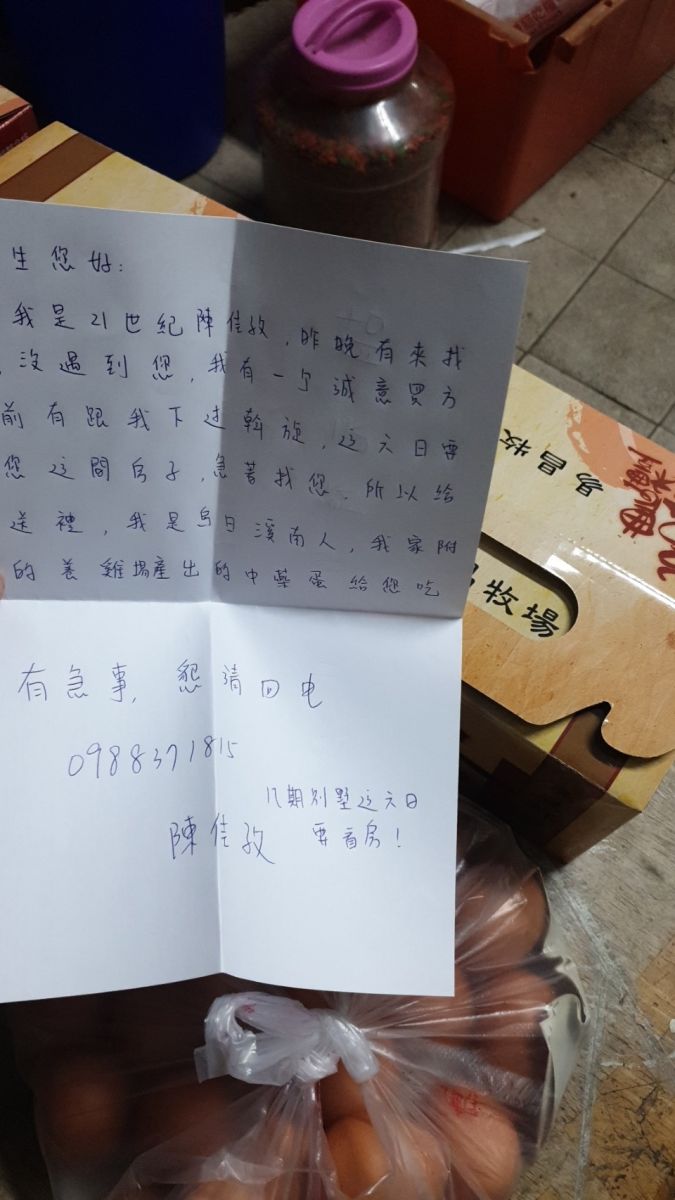 生您好:
我是21世紀陳佳孜,昨晚有來找
沒遇到您,我有一个诚意買方
前有跟我下过斡旋,这六日要
您这間房子,急著找您,所以给
送禮,我是烏日溪南人,我家附
的養雞場產出的中藥蛋給您吃
有急事,懇請回电
0988371815
八期别墅这六日
要看房!
陳佳孜
易昌牧
牧場